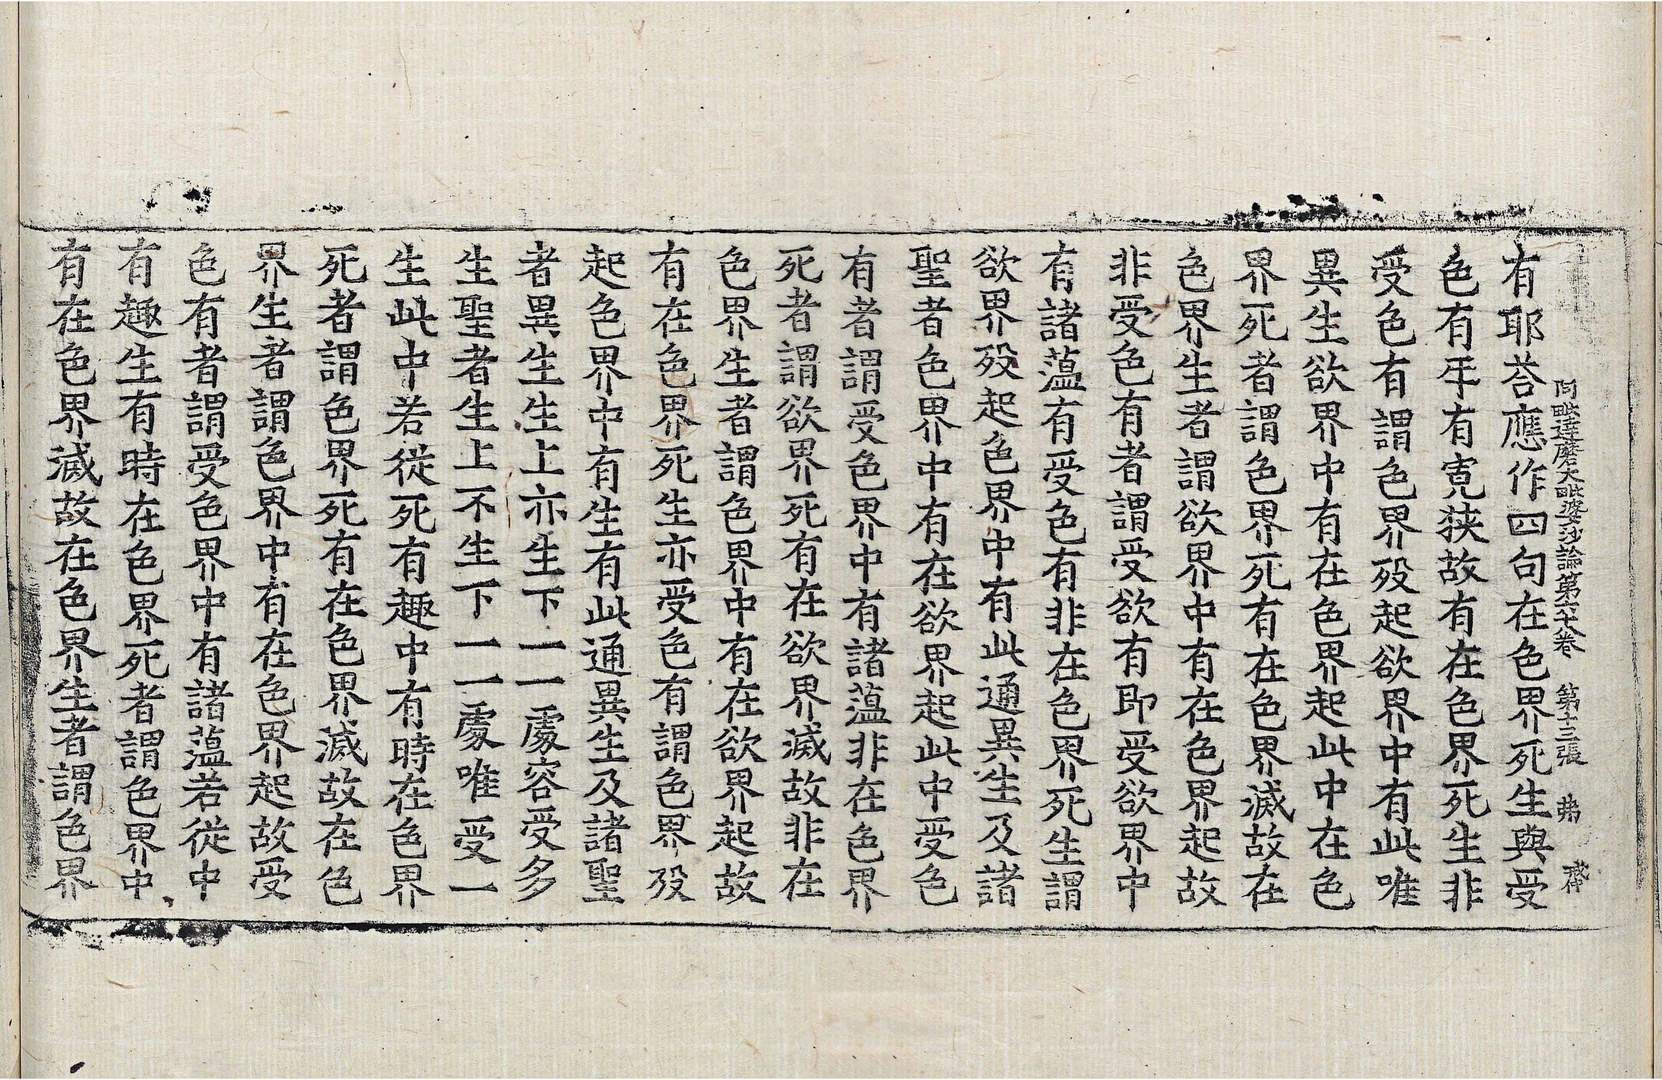 阿毗達磨大毗婆沙論第六十八卷　第十三張　弗
有耶荅應作四句在色界死生與受
色有㸦有寬狹故有在色界死生非
受色有謂色界歿起欲界中有此唯
異生欲界中有在色界起此中在色
界死者謂色界死有在色界滅故在
色界生者謂欲界中有在色界起故
非受色有者謂受欲有即受欲界中
有諸蘊有受色有非在色界死生謂
欲界歿起色界中有此通異生及諸
聖者色界中有在欲界起此中受色
有者謂受色界中有諸蘊非在色界
死者謂欲界死有在欲界滅故非在
色界生者謂色界中有在欲界起故
有在色界死生亦受色有謂色界歿
起色界中有生有此通異生及諸聖
者異生生上亦生下一一處容受多
生聖者生上不生下一一處唯受一
生此中若從死有趣中有時在色界
死者謂色界死有在色界滅故在色
界生者謂色界中有在色界起故受
色有者謂受色界中有諸蘊若從中
有趣生有時在色界死者謂色界中
有在色界滅故在色界生者謂色界